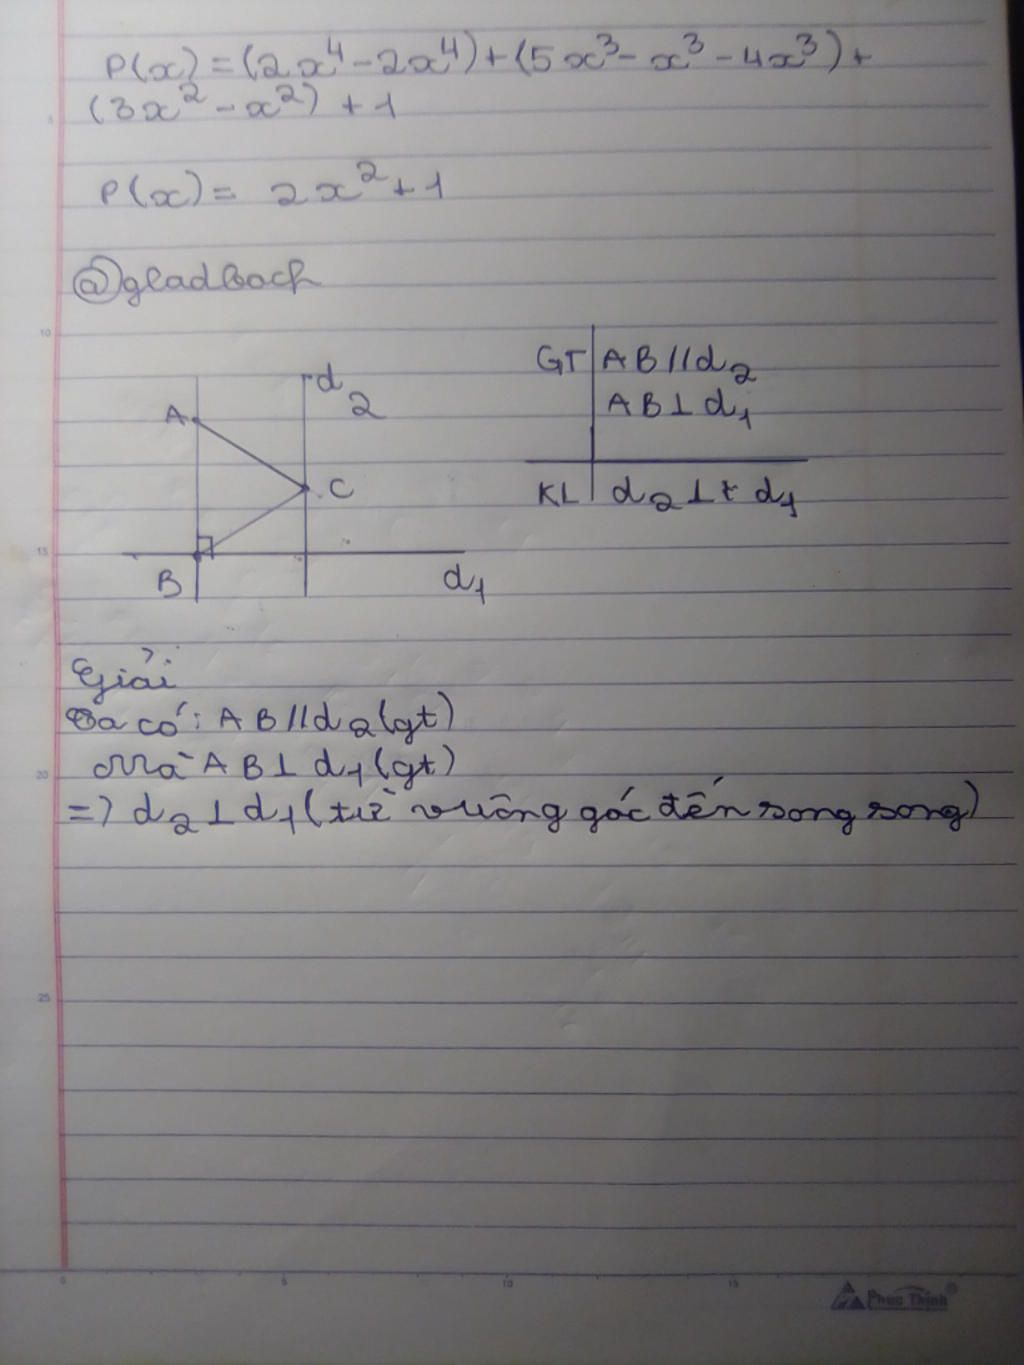 P(x) = (2x⁴ - 2x⁴) + (5x³ - x³ - 4x³) +
(3x² - x²) + 1
P(x) = 2x² + 1
@gladbach
GT AB // d₂
AB ⊥ d₁
KL d₂ ⊥ d₁
d₂
A
C
B
d₁
Giải
Ta có: AB // d₂ (gt)
Mà AB ⊥ d₁ (gt)
=> d₂ ⊥ d₁ (từ vuông góc đến song song)
5
10
15
20
25
0 5 10 15
Phuc Thinh